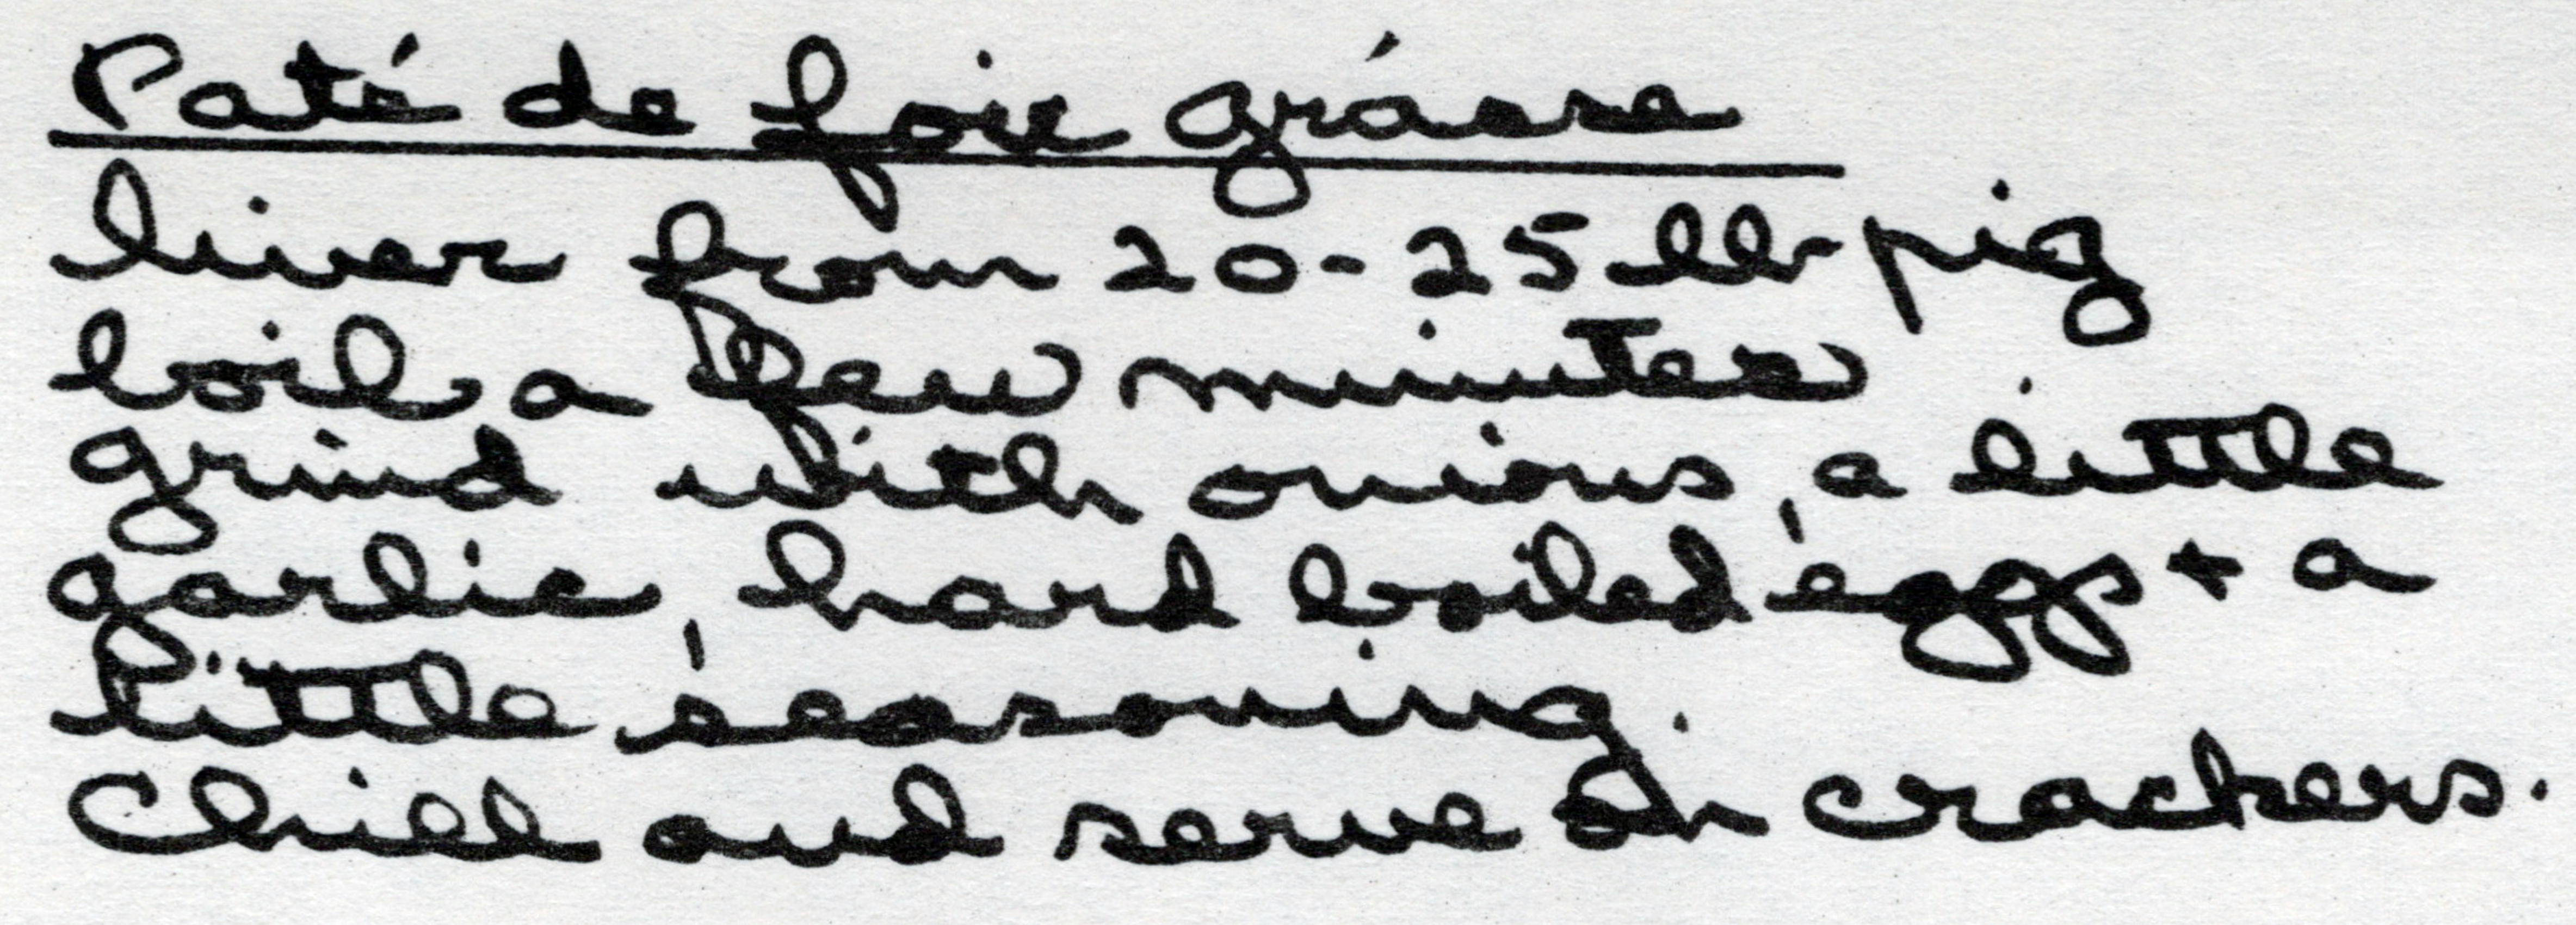 Paté de foie grásse
liver from 20-25 lb pig
boil a few minutes
grind with onions, a little
garlic, hard boiled eggs + a
little seasoning.
Chill and serve on crackers.